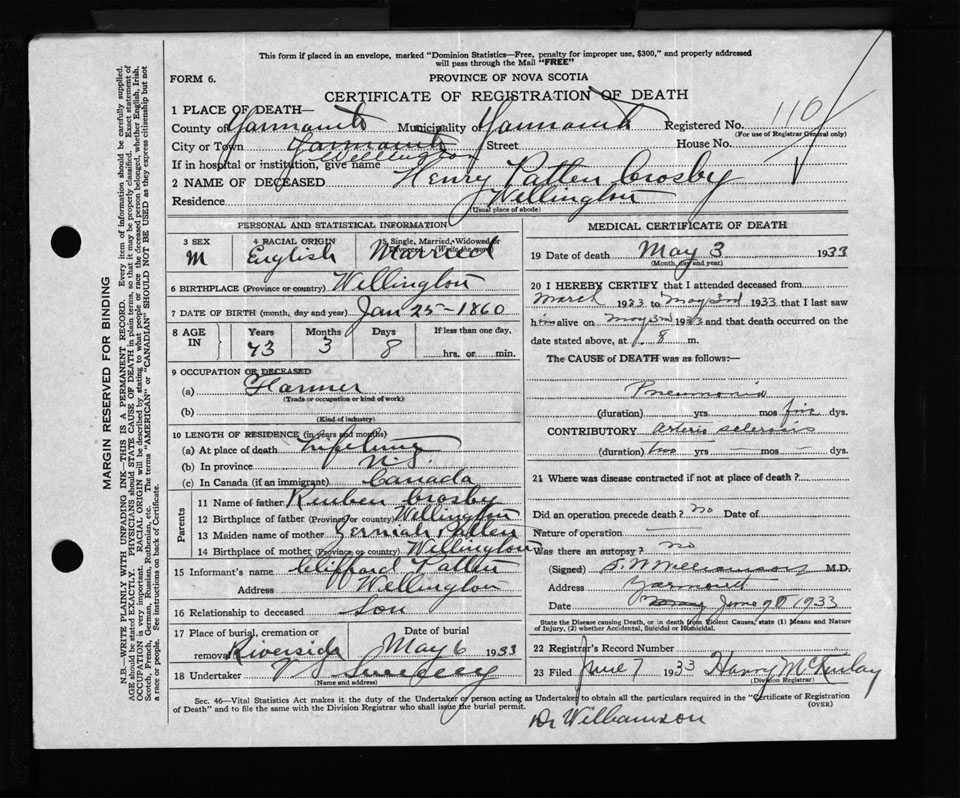 This form if placed in an envelope, marked "Dominion Statistics—Free, penalty for improper use, $300," and properly addressed
will pass through the Mail "FREE"
FORM 6.
PROVINCE OF NOVA SCOTIA
CERTIFICATE OF REGISTRATION OF DEATH
1 PLACE OF DEATH—
County of Yarmouth Municipality of Yarmouth Registered No. 110
(For use of Registrar General only)
City or Town Yarmouth Street House No.
Wellington
If in hospital or institution, give name
2 NAME OF DECEASED Henry Patten Crosby
Residence Wellington
(Usual place of abode)
PERSONAL AND STATISTICAL INFORMATION
3 SEX 4 RACIAL ORIGIN 5 Single, Married, Widowed or
M English Married
6 BIRTHPLACE (Province or country) Wellington
7 DATE OF BIRTH (month, day and year) Jan 25 - 1860
8 AGE IN Years Months Days If less than one day,
73 3 8 hrs. or min.
9 OCCUPATION OF DECEASED
(a) Farmer
(Trade or occupation or kind of work)
(b)
(Kind of industry)
10 LENGTH OF RESIDENCE (in years and months)
(a) At place of death Lifetime
(b) In province N.S.
(c) In Canada (if an immigrant) Canada
Parents
11 Name of father Reuben Crosby
12 Birthplace of father (Province or country) Wellington
13 Maiden name of mother Patten
14 Birthplace of mother (Province or country) Wellington
15 Informant's name Clifford Patten
Address Wellington
16 Relationship to deceased Son
17 Place of burial, cremation or Date of burial
removal Riverside May 6 1933
18 Undertaker V S Sweeny
(Name and address)
MEDICAL CERTIFICATE OF DEATH
19 Date of death May 3 1933
(Month, day and year)
20 I HEREBY CERTIFY that I attended deceased from
March 1933 to May 3rd 1933 that I last saw
him alive on May 3rd 1933 and that death occurred on the
date stated above, at 8 m.
The CAUSE of DEATH was as follows:—
Pneumonia
(duration) yrs mos five dys.
CONTRIBUTORY Arterio sclerosis
(duration) two yrs — mos — dys.
21 Where was disease contracted if not at place of death?
Did an operation precede death? no Date of
Nature of operation —
Was there an autopsy? no
(Signed) Williamson M.D.
Address Yarmouth
Date June 1933
State the Disease causing Death, or in death from Violent Causes, state (1) Means and Nature
of Injury, (2) whether Accidental, Suicidal or Homicidal.
22 Registrar's Record Number
23 Filed June 7 1933 Harry McKinlay
(Division Registrar)
Sec. 46—Vital Statistics Act makes it the duty of the Undertaker or person acting as Undertaker to obtain all the particulars required in the "Certificate of Registration
of Death" and to file the same with the Division Registrar who shall issue the burial permit.
(OVER)
Dr Williamson
MARGIN RESERVED FOR BINDING
N.B.—WRITE PLAINLY WITH UNFADING INK—THIS IS A PERMANENT RECORD. Every item of information should be carefully supplied.
AGE should be stated EXACTLY. PHYSICIANS should STATE CAUSE OF DEATH in plain terms, so that it may be properly classified. Exact statement of
OCCUPATION is very important. RACIAL ORIGIN will be described by stating to what people or race the deceased person belonged, whether English, Irish,
Scotch, French, German, Russian, Ruthenian, etc. The terms "AMERICAN" or "CANADIAN" SHOULD NOT BE USED as they express citizenship but not
a race or people. See instructions on back of Certificate.